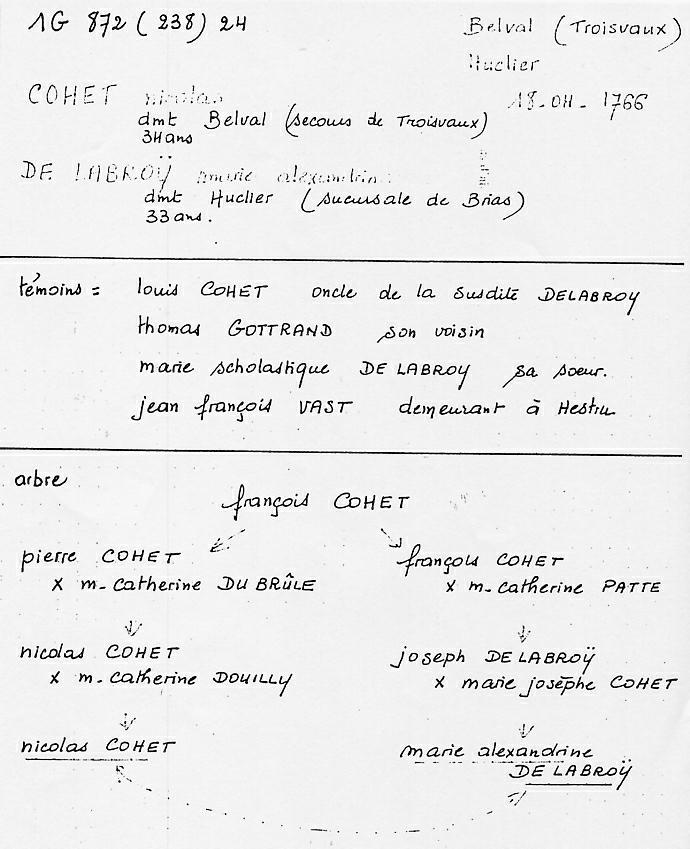 1G 872 (238) 24
Belval (Troisvaux)
Huclier
18-04-1766
COHET nicolas
dmt Belval (secours de Troisvaux)
34ans
DE LABROŸ marie alexandrine
dmt Huclier (sucursale de Brias)
33ans.
témoins = louis COHET oncle de la susdite DELABROY
thomas GOTTRAND son voisin
marie scholastique DE LABROY sa soeur.
jean françois VAST demeurant à Hestru
arbre
françois COHET
pierre COHET
x m-catherine DU BRÛLE
françois COHET
x m-catherine PATTE
nicolas COHET
x m-catherine DOUILLY
joseph DE LABROŸ
x marie josèphe COHET
nicolas COHET
marie alexandrine
DE LABROŸ